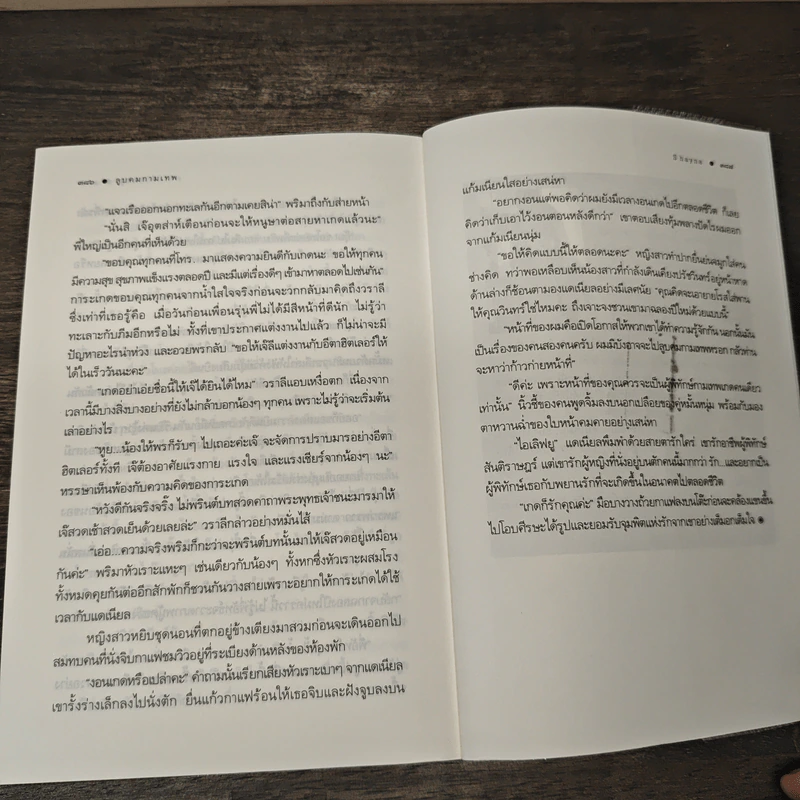 ๓๘๖ ● ลูบคมกามเทพ
"แจวเรือออกนอกทะเลกันอีกตามเคยสิน่า" พริมาถึงกับส่ายหน้า
"นั่นสิ เจ๊อุตส่าห์เตือนก่อนจะให้หนูษาต่อสายหาเกดแล้วนะ"
พี่ใหญ่เป็นอีกคนที่เห็นด้วย
"ขอบคุณทุกคนที่โทร. มาแสดงความยินดีกับเกดนะ ขอให้ทุกคน
มีความสุข สุขภาพแข็งแรงตลอดปี และมีแต่เรื่องดีๆ เข้ามาหาตลอดไปเช่นกัน"
การะเกดขอบคุณทุกคนจากน้ำใสใจจริงก่อนจะวกกลับมาคิดถึงวราลี
ซึ่งเท่าที่เธอรู้คือ เมื่อวันก่อนเพื่อนรุ่นพี่ไม่ได้มีสีหน้าที่ดีนัก ไม่รู้ว่า
ทะเลาะกับภีมอีกหรือไม่ ทั้งที่เขาประกาศแต่งงานไปแล้ว ก็ไม่น่าจะมี
ปัญหาอะไรน่าห่วง และอวยพรกลับ "ขอให้เจ๊ลีแต่งงานกับอีตาฮิตเลอร์ให้
ได้ในเร็ววันนะคะ"
"เกดอย่าเอ่ยชื่อนี้ให้เจ๊ได้ยินได้ไหม" วราลีแอบเหงื่อตก เนื่องจาก
เวลานี้มีบางสิ่งบางอย่างที่ยังไม่กล้าบอกน้องๆ ทุกคน เพราะไม่รู้ว่าจะเริ่มต้น
เล่าอย่างไร
"หูย...น้องให้พรก็รับๆ ไปเถอะค่ะเจ๊ จะจัดการปราบมารอย่างอีตา
ฮิตเลอร์ทั้งที เจ๊ต้องอาศัยแรงกาย แรงใจ และแรงเชียร์จากน้องๆ นะ"
หรรษาเห็นพ้องกับความคิดของการะเกด
"หวังดีกันจริงจริ๊ง ไม่พรินต์บทสวดคาถาพระพุทธเจ้าชนะมารมาให้
เจ๊สวดเช้าสวดเย็นด้วยเลยล่ะ" วราลีกล่าวอย่างหมั่นไส้
"เอ่อ...ความจริงพริมก็กะว่าจะพรินต์บทนั้นมาให้เจ๊สวดอยู่เหมือน
กันค่ะ" พริมาหัวเราะแหะๆ เช่นเดียวกับน้องๆ ทั้งหกซึ่งหัวเราะผสมโรง
ทั้งหมดคุยกันต่ออีกสักพักก็ชวนกันวางสายเพราะอยากให้การะเกดได้ใช้
เวลากับแดเนียล
หญิงสาวหยิบชุดนอนที่ตกอยู่ข้างเตียงมาสวมก่อนจะเดินออกไป
สมทบคนที่นั่งจิบกาแฟชมวิวอยู่ที่ระเบียงด้านหลังของห้องพัก
"งอนเกดหรือเปล่าคะ" คำถามนั้นเรียกเสียงหัวเราะเบาๆ จากแดเนียล
เขารั้งร่างเล็กลงไปนั่งตัก ยื่นแก้วกาแฟร้อนให้เธอจิบและฝังจูบลงบน
● ๓๘๗
แก้มเนียนใสอย่างเสน่หา
"อยากงอนแต่พอคิดว่าผมยังมีเวลางอนเกดไปอีกตลอดชีวิต ก็เลย
คิดว่าเก็บเอาไว้งอนตอนหลังดีกว่า" เขาตอบเสียงทุ้มพลางปัดไรผมออก
จากแก้มเนียนนุ่ม
"ขอให้คิดแบบนี้ให้ตลอดนะคะ" หญิงสาวทำปากยื่นย่นจมูกใส่คน
ช่างคิด ทว่าพอเหลือบเห็นน้องสาวที่กำลังเดินเคียงปรัชวินทร์อยู่หน้าหาด
ด้านล่างก็ช้อนตามองแดเนียลอย่างมีเลศนัย "คุณคิดจะเอายายโรสใส่พาน
ให้คุณวินทร์ใช่ไหมคะ ถึงเจาะจงชวนเขามาฉลองปีใหม่ด้วยแบบนี้"
"หน้าที่ของผมคือเปิดโอกาสให้พวกเขาได้ทำความรู้จักกัน นอกนั้นมัน
เป็นเรื่องของคนสองคนครับ ผมมิบังอาจจะไปลูบคมกามเทพหรอก กลัวท่าน
จะหาว่าก้าวก่ายหน้าที่"
"ดีค่ะ เพราะหน้าที่ของคุณควรจะเป็นผู้พิทักษ์กามเทพเกดคนเดียว
เท่านั้น" นิ้วชี้ของคนพูดจิ้มลงบนอกเปลือยของคู่หมั้นหนุ่ม พร้อมกับมอง
ตาหวานฉ่ำของใบหน้าคมคายอย่างเสน่หา
"ไอเลิฟยู" แดเนียลพึมพำด้วยสายตารักใคร่ เขารักอาชีพผู้พิทักษ์
สันติราษฎร์ แต่เขารักผู้หญิงที่นั่งอยู่บนตักคนนี้มากกว่า รัก...และอยากเป็น
ผู้พิทักษ์เธอกับพยานรักที่จะเกิดขึ้นในอนาคตไปตลอดชีวิต
"เกดก็รักคุณค่ะ" มือบางวางถ้วยกาแฟลงบนโต๊ะก่อนจะคล้องแขนขึ้น
ไปโอบศีรษะได้รูปและยอมรับจุมพิตแห่งรักจากเขาอย่างเต็มอกเต็มใจ ◉